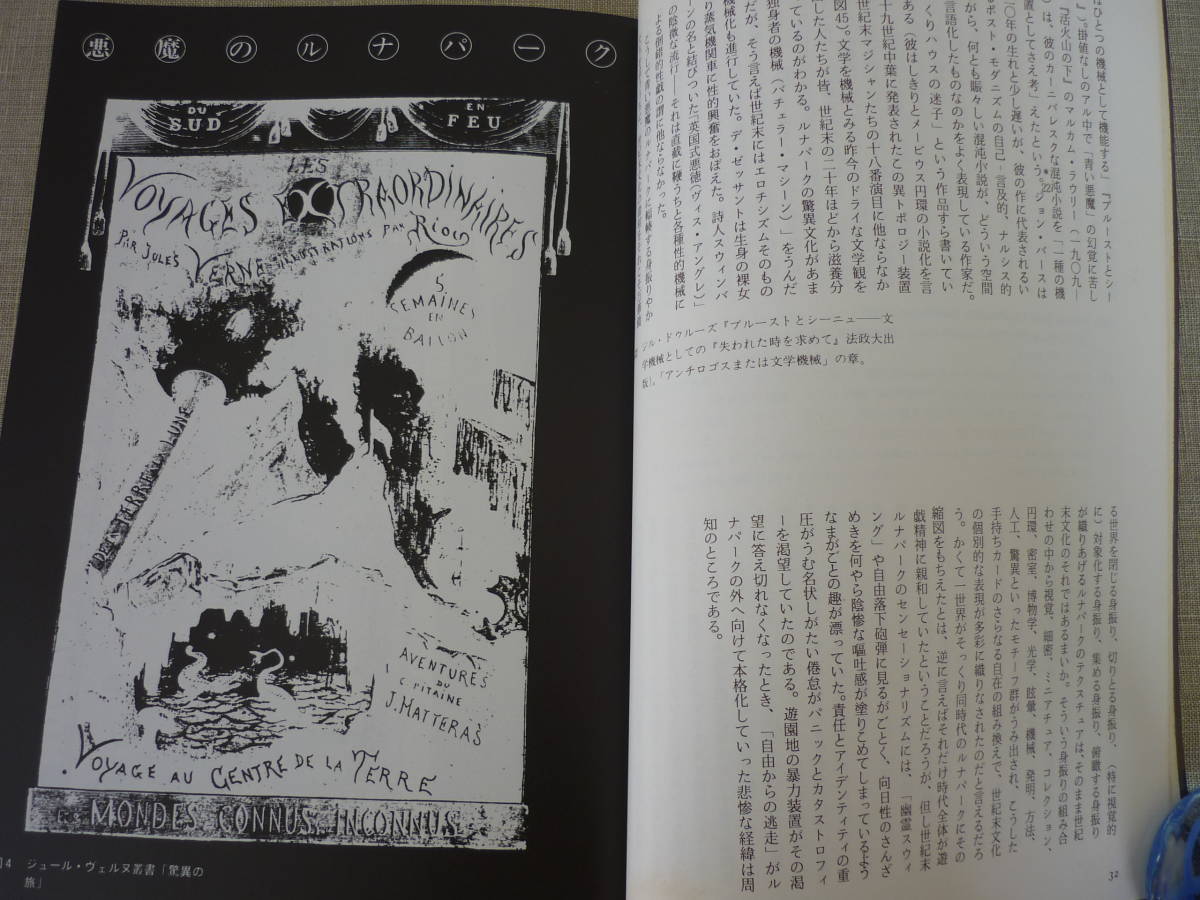 悪魔のルナパーク
DU
SUD
EN
FEU
LES
VOYAGES EXTRAORDINAIRES
PAR JULES VERNE ILLUSTRATIONS PAR RIOU
5
SEMAINES
EN
BALLON
DE LA TERRE A LA LUNE
AVENTURES
DU
C PITAINE
J. HATTERAS
VOYAGE AU CENTRE DE LA TERRE
MONDES CONNUS INCONNUS
14 ジュール・ヴェルヌ叢書「驚異の
旅」
はひとつの機械として機能する」『プルーストとシー
』)。掛値なしのアル中で「青い悪魔」の幻覚に苦し
『活火山の下』のマルカム・ラウリー(一九〇九―
)は、彼のカーニバレスクな混沌小説を「一種の機
置としてさえ考」えたという。*22ジョン・バースは
〇年の生れと少し遅いが、彼の作に代表されるい
るポスト・モダニズムの自己言及的、ナルシス的
がら、何とも賑々しい混沌小説が、どういう空間
言語化したものなのかをよく表現している作家だ。
くりハウスの迷子」という作品すら書いてい
ある(彼はしきりとメービウス円環の小説化を言
十九世紀中葉に発表されたこの異トポロジー装置
世紀末マジシャンたちの十八番演目に他ならなか
図45)。文学を機械とみる昨今のドライな文学観を
した人たちが皆、世紀末の二十年ほどから滋養分
ているのがわかる。ルナパークの驚異文化があま
独身者の機械(バチェラー・マシーン)」をうんだ
だが、そう言えば世紀末にはエロチシズムそのもの
機械化も進行していた。デ・ゼッサントは生身の裸女
り蒸気機関車に性的興奮をおぼえた。詩人スウィンバ
ーンの名と結びついた『英国式悪徳(ヴィス・アングレ)」
の陰微な流行――それは直截に鞭うちと各種性的機械に
よる倒錯的性戯の謂に他ならなかった。
こうして青い悪魔のルナパークに輻輳する身振りやか
ジル・ドゥルーズ『プルーストとシーニュ――文
学機械としての『失われた時を求めて』法政大出
版』、「アンチロゴスまたは文学機械」の章。
る世界を閉じる身振り、切りとる身振り、(特に視覚的
に)対象化する身振り、集める身振り、俯瞰する身振り
が織りあげるルナパークのテクスチュアは、そのまま世紀
末文化のそれではあるまいか。そういう身振りの組み合
わせの中から視覚、細密、ミニアチュア、コレクション、
円環、密室、博物学、光学、眩暈、機械、発明、方法、
人工、驚異といったモチーフ群がうみ出され、こうした
手持ちカードのさらなる自在の組み換えで、世紀末文化
の個別的な表現が多彩に織りなされたのだと言えるだろ
う。かくて一世界がそっくり同時代のルナパークにその
縮図をもちえたとは、逆に言えばそれだけ時代全体が遊
戯精神に親和していたということだろうが、但し世紀末
ルナパークのセンセーショナリズムには、「幽霊スウィ
ング」や自由落下砲弾に見るがごとく、向日性のさんざ
めきを何やら陰惨な嘔吐感が塗りこめてしまっているよう
なまがごとの趣が漂っていた。責任とアイデンティティの重
圧がうむ名状しがたい倦怠がパニックとカタストロフィ
ーを渇望していたのである。遊園地の暴力装置がその渇
望に答え切れなくなったとき、「自由からの逃走」がル
ナパークの外へ向けて本格化していった悲惨な経緯は周
知のところである。
32